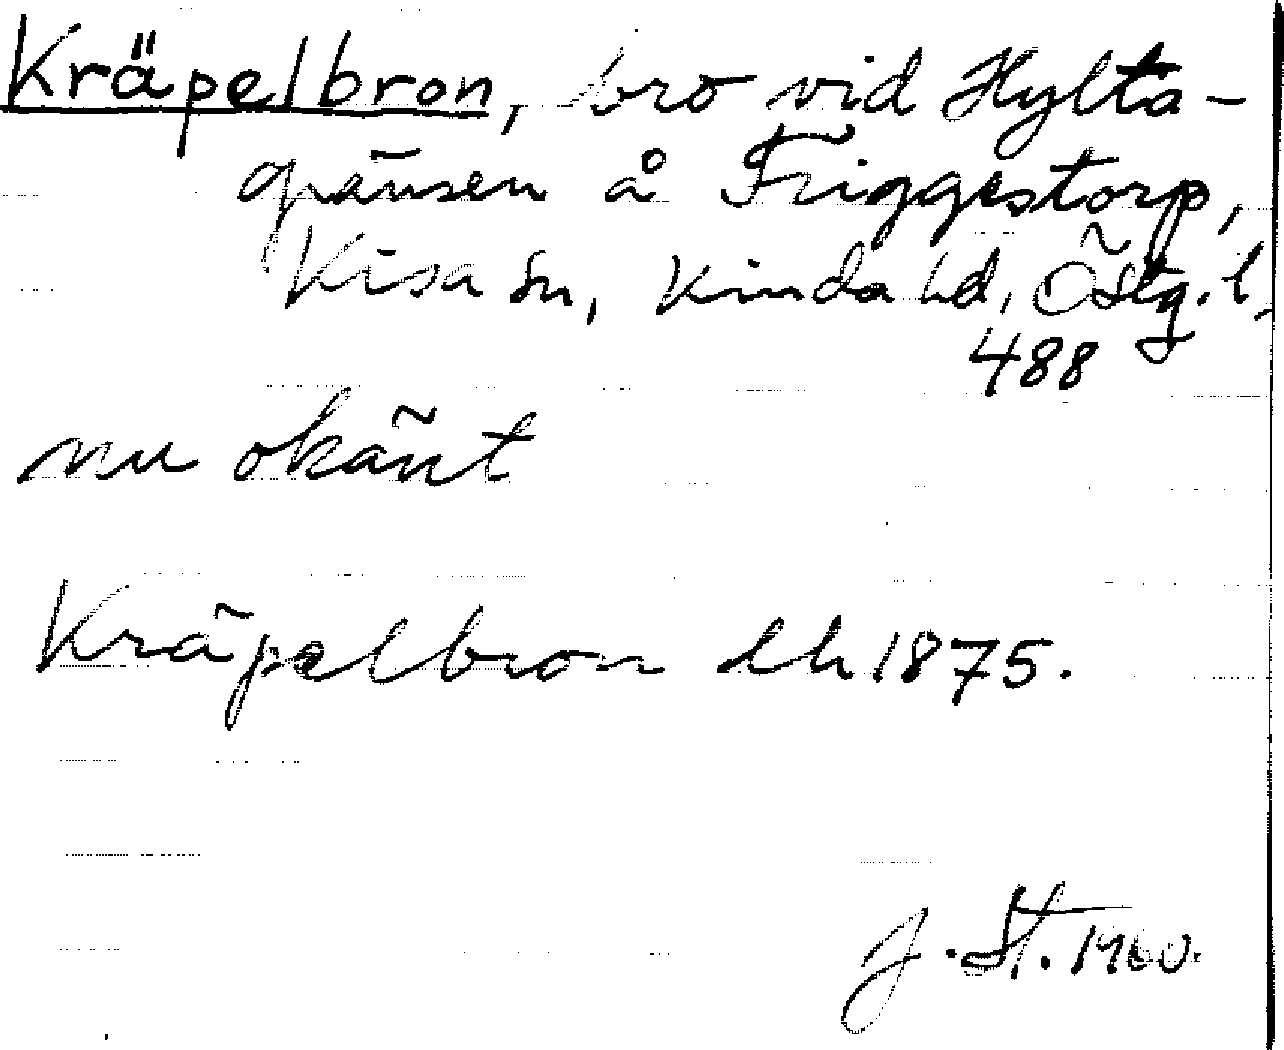 Kräpelbron, bro vid Hylta-
gränsen å Friggestorp,
Kisa sn, Kinda hd, Östg. l.
488
nu okänt
Kräpelbron dh 1875.
J. St. 1960.